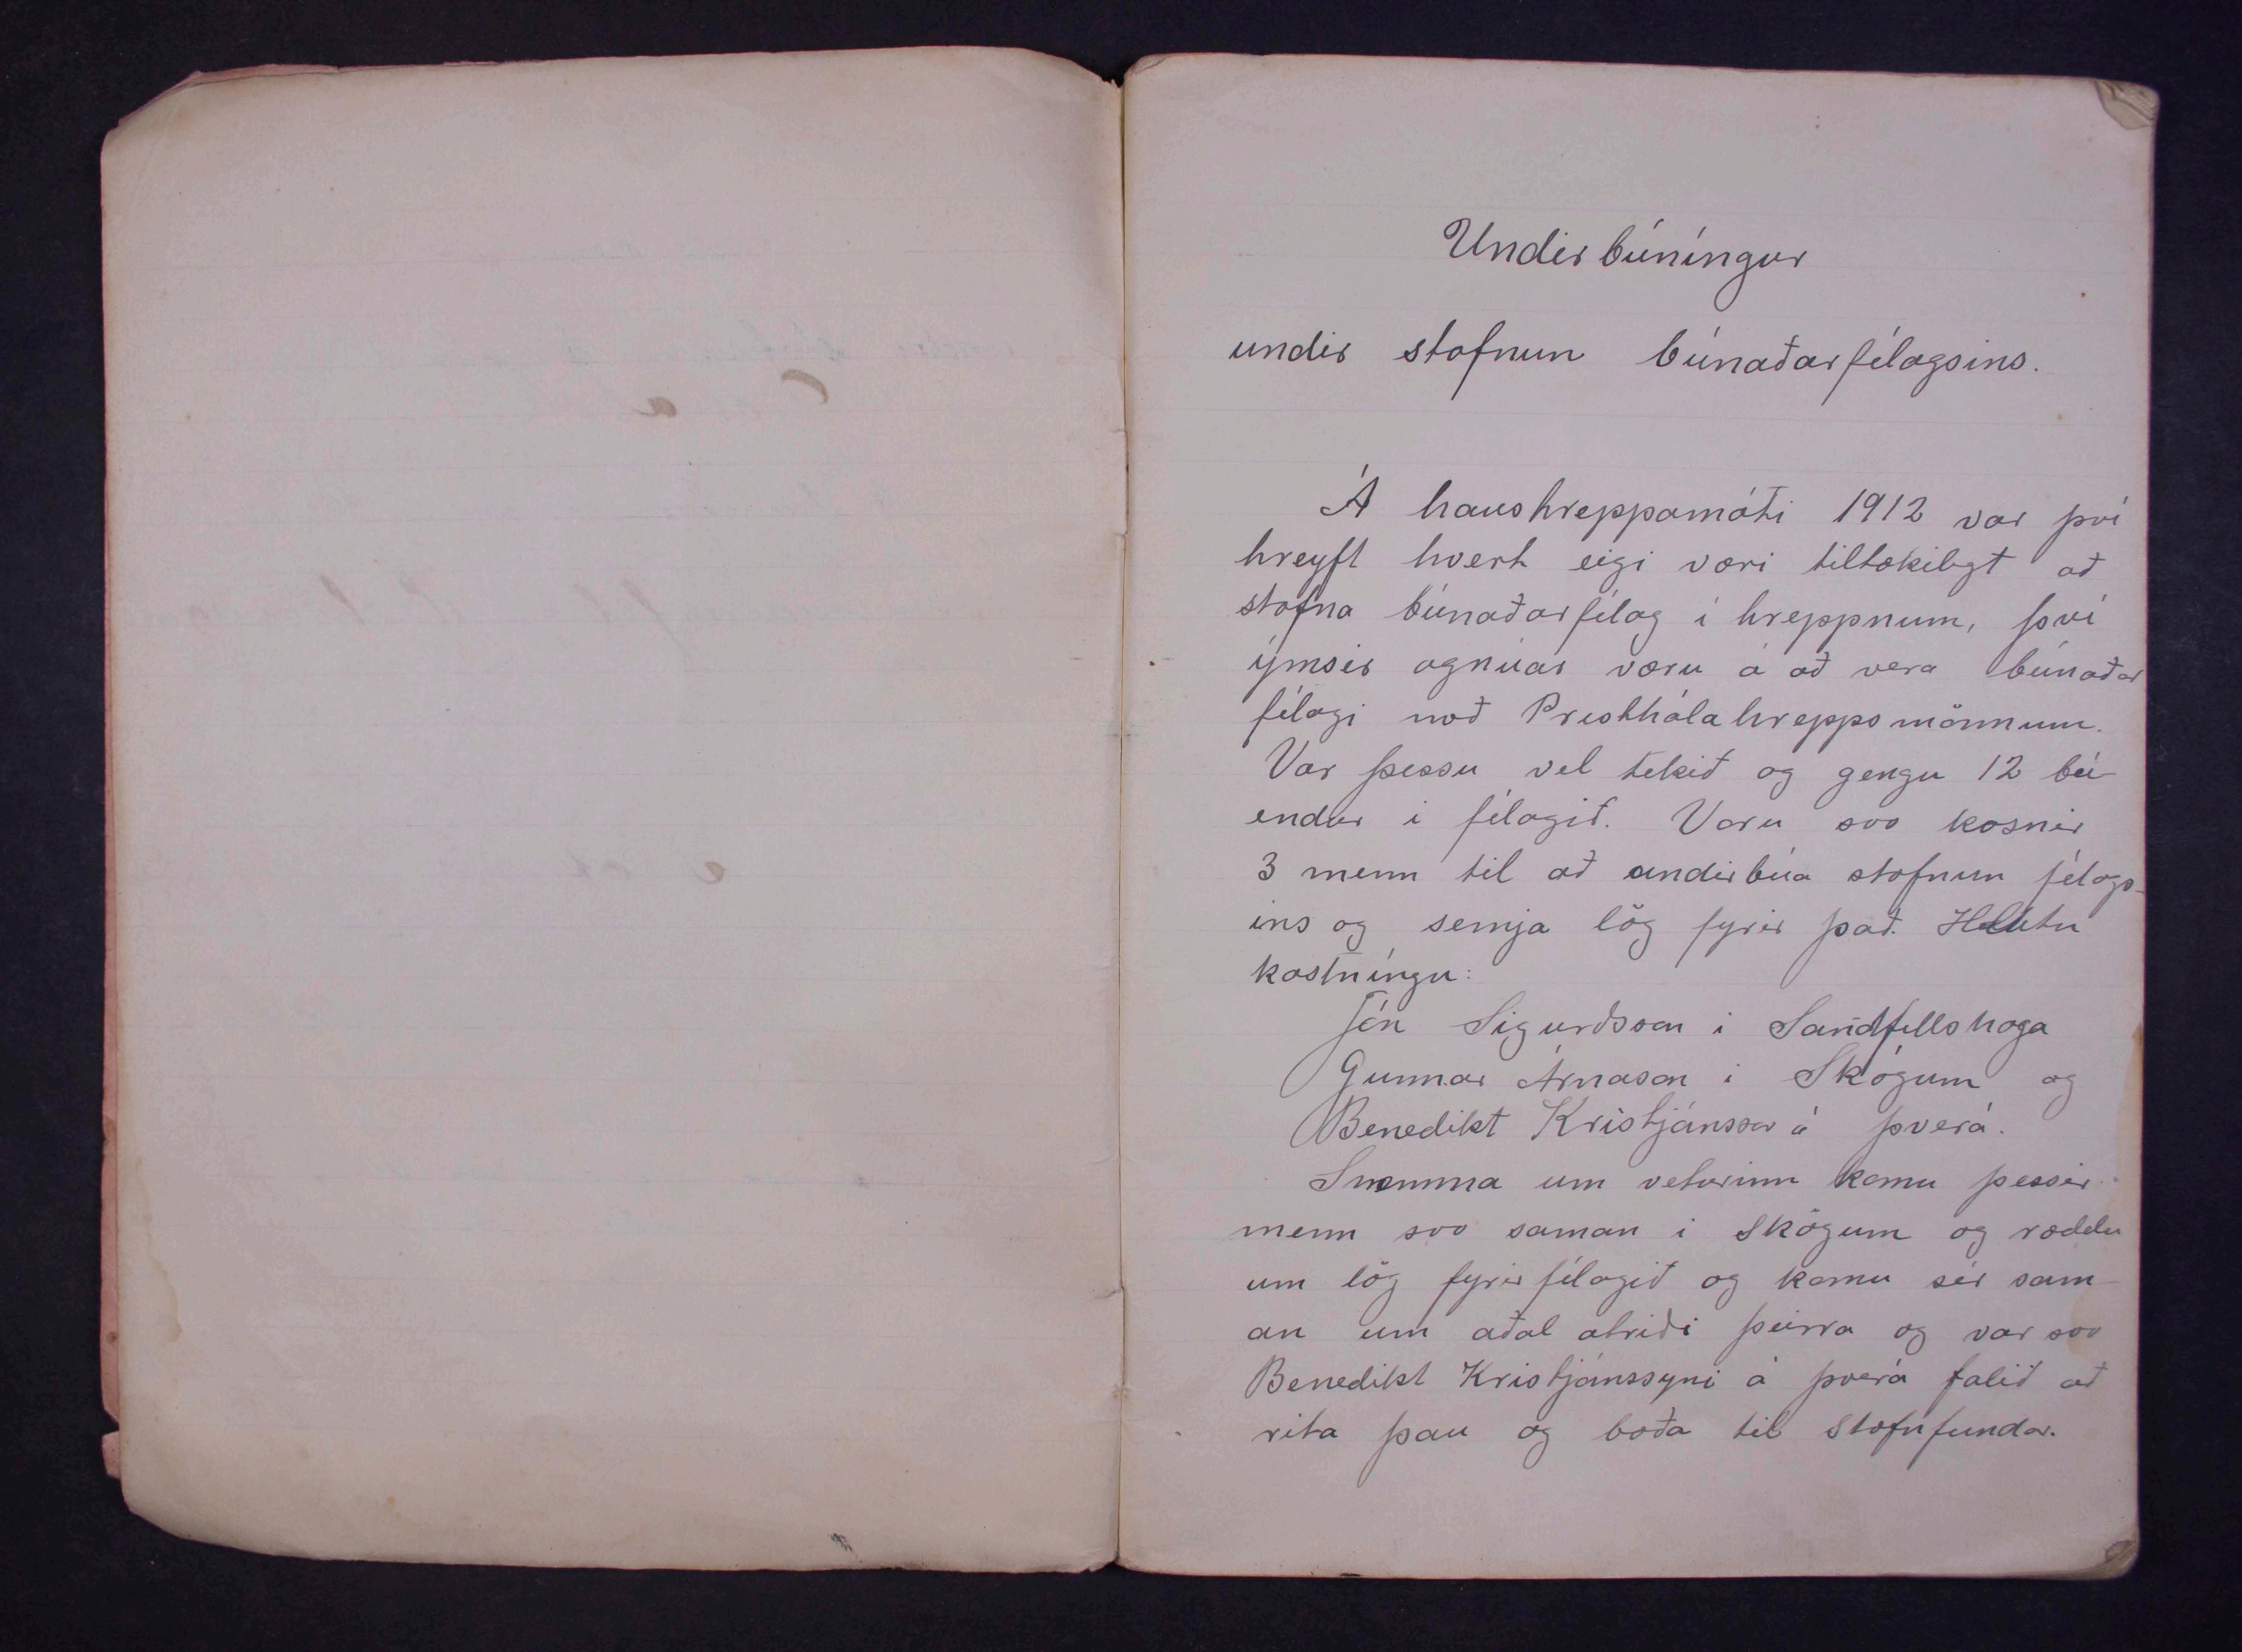 Undirbúníngur
undir stofnun búnaðarfélagsins.
Á haushreppamóti 1912 var því
hreyft hvert eigi væri tiltækilegt að
stofna búnaðarfélag í hreppnum, því
ýmsir agnúar væru á að vera búnaðar
félagi með Presthólahreppsmönnum.
Var þessu vel tekið og gengu 12 bú-
endur í félagið. Voru svo kosnir
3 menn til að undirbúa stofnun félags-
ins og semja lög fyrir það. Hlutu
kostníngu:
Jón Sigurðsson í Sandfellshaga
Gunnar Árnason í Skógum og
Benedikt Kristjánsson á Þverá.
Snemma um veturinn komu þessir
menn svo saman í Skógum og ræddu
um lög fyrir félagið og komu sér sam-
an um aðal atriði þeirra og var svo
Benedikt Kristjánssyni á Þverá falið að
rita þau og boða til stofnfundar.